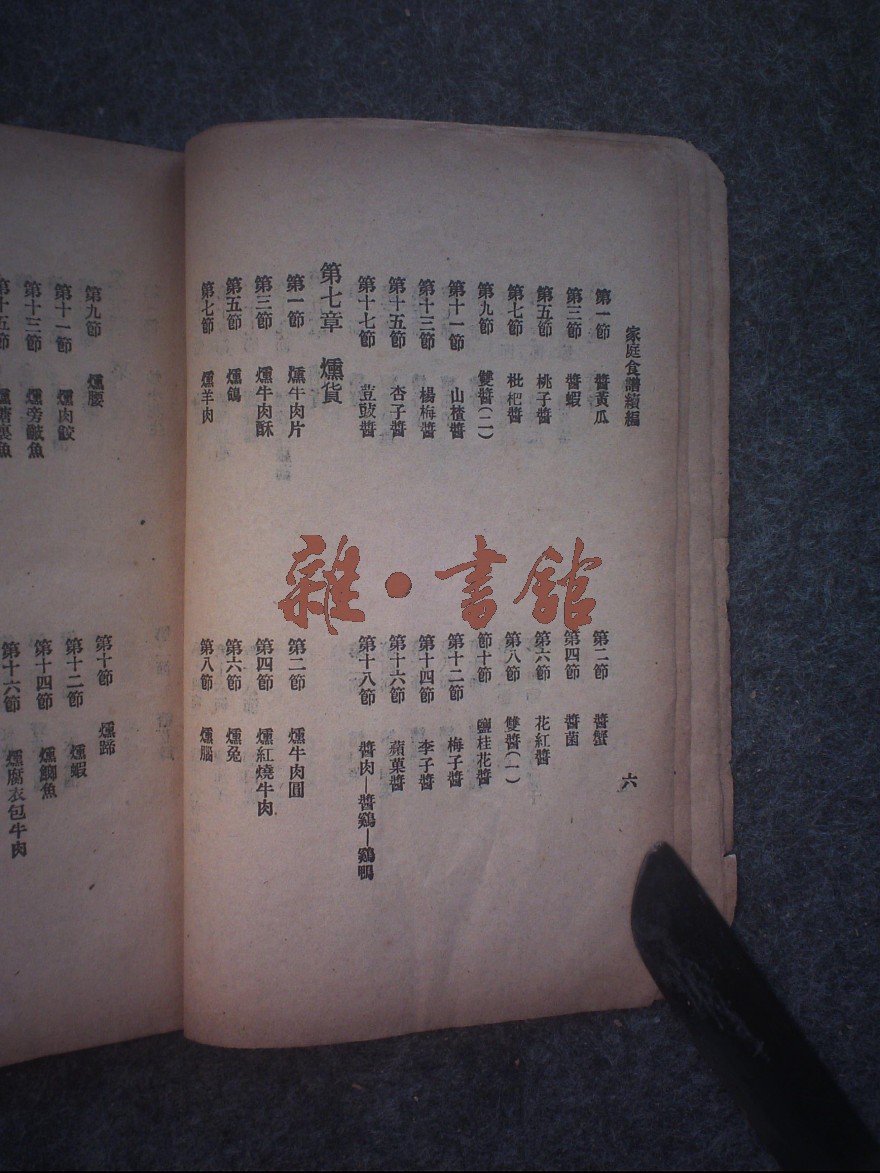 家庭食譜續編
六
第一節 醬黃瓜
第二節 醬蟹
第三節 醬蝦
第四節 醬菌
第五節 桃子醬
第六節 花紅醬
第七節 枇杷醬
第八節 雙醬(一)
第九節 雙醬(二)
節十節 鹽桂花醬
第十一節 山楂醬
第十二節 梅子醬
第十三節 楊梅醬
第十四節 李子醬
第十五節 杏子醬
第十六節 蘋菓醬
第十七節 荳豉醬
第十八節 醬肉—醬鷄—鷄鴨
第七章 燻貨
第一節 燻牛肉片
第二節 燻牛肉圓
第三節 燻牛肉酥
第四節 燻紅燒牛肉
第五節 燻鴿
第六節 燻兔
第七節 燻羊肉
第八節 燻腦
第九節 燻腰
第十節 燻蹄
第十一節 燻肉餃
第十二節 燻蝦
第十三節 燻旁魮魚
第十四節 燻鯽魚
第十五節 燻薺裹魚
第十六節 燻腐衣包牛肉
雜·書館